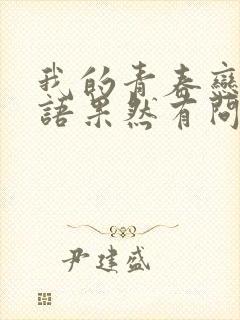 我的青春戀
語果然有問
尹建盛